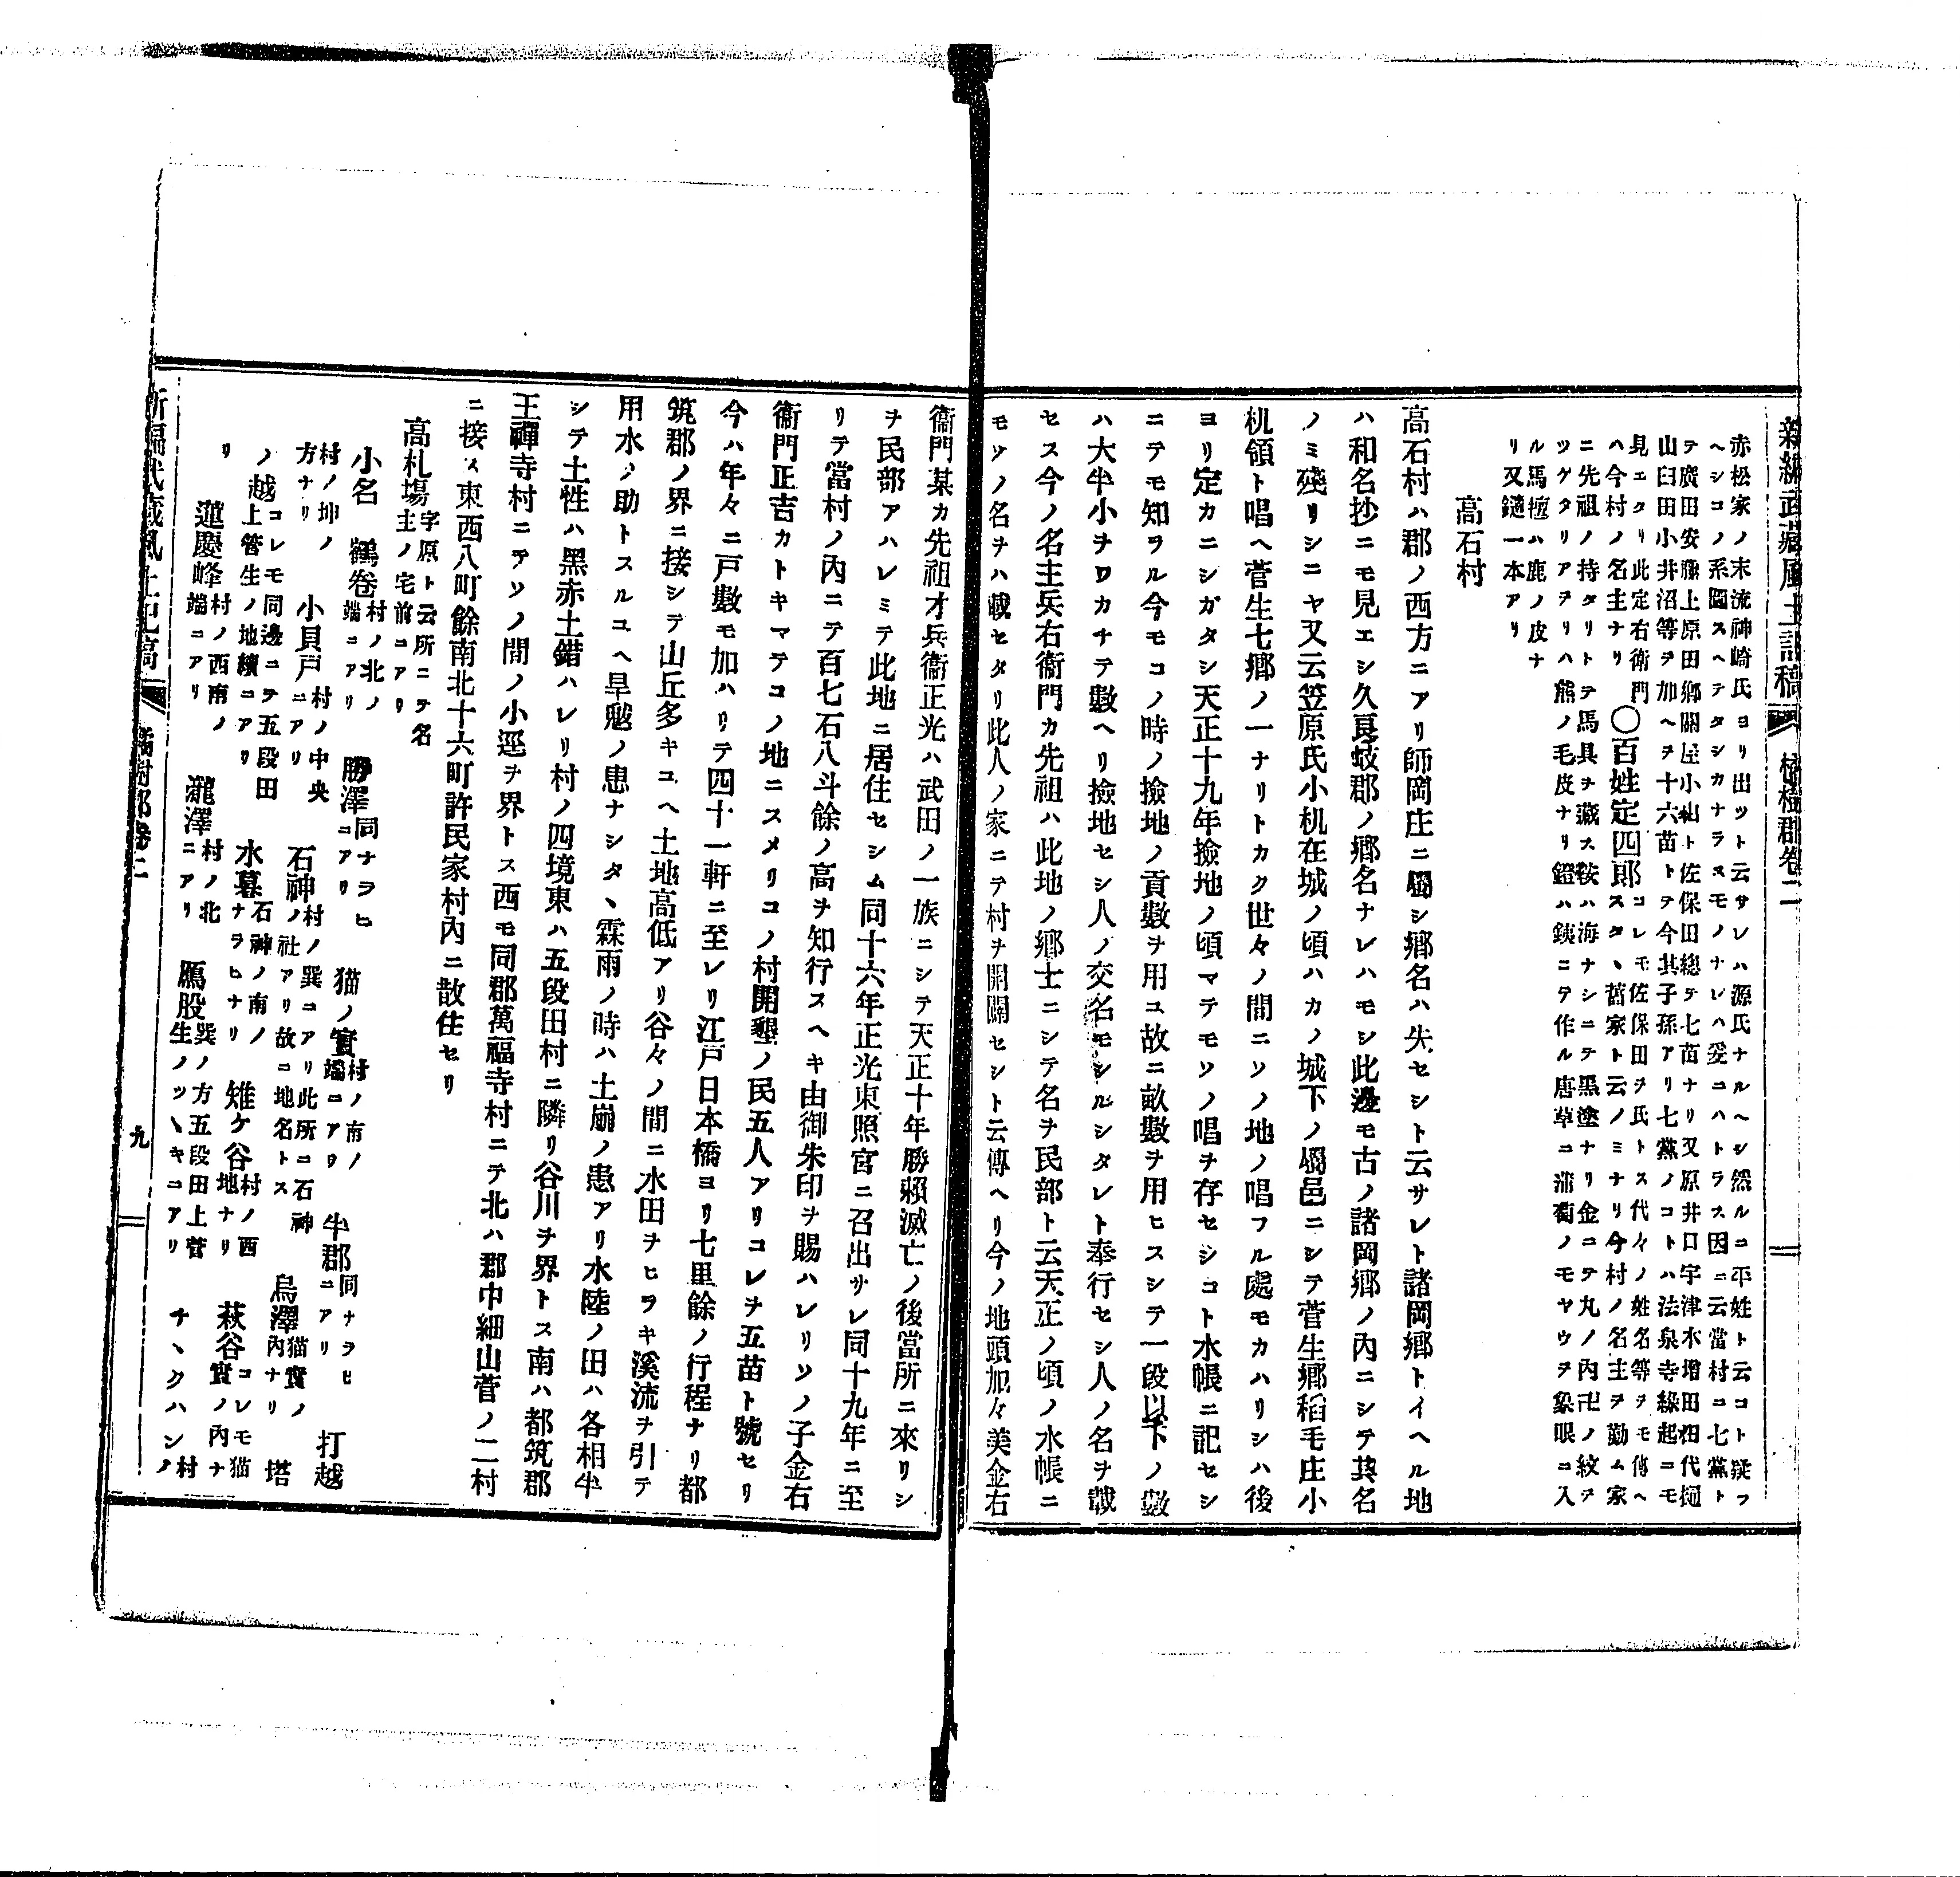 新編武藏風土記稿 橘樹郡卷之二
赤松家ノ末流神崎氏ヨリ出ツト云サレハ源氏ナルヘシ然ルニ平姓ト云コト疑フ
ヘシコノ系圖スヘテタシカナラヌモノナレハ爰ニハトラス因ニ云當村ニ七黨ト
テ廣田安藤上原田鄕關屋小山ト佐保田總テ七苗ナリ又原井口宇津木增田田代樋
山臼田小井沼等ヲ加ヘテ十六苗トテ今其子孫アリ七黨ノコトハ法泉寺緣起ニモ
見エタリ此定右衛門
ハ今村ノ名主ナリ
○百姓定四郎
コレモ佐保田ヲ氏トス代々ノ姓名等ヲモ傳ヘ
スタヽ舊家ト云ノミナリ今村ノ名主ヲ勤ム家
ニ先祖ノ持タリトテ馬具ヲ藏ス鞍ハ海ナシニテ黑塗ナリ金ニテ丸ノ內卍ノ紋ヲ
ツケタリアヲリハ熊ノ毛皮ナリ鐙ハ鐵ニテ作ル唐草ニ蒲萄ノモヤウヲ象眼ニ入
ル馬氈ハ鹿ノ皮ナ
リ又鑓一本アリ
高石村
高石村ハ郡ノ西方ニアリ師岡庄ニ屬シ鄕名ハ失セシト云サレト諸岡鄕トイヘル地
ハ和名抄ニモ見エシ久良岐郡ノ鄕名ナレハモシ此邊モ古ノ諸岡鄕ノ內ニシテ其名
ノミ殘リシニヤ又云笠原氏小机在城ノ頃ハカノ城下ノ屬邑ニシテ菅生鄕稻毛庄小
机領ト唱ヘ菅生七鄕ノ一ナリトカク世々ノ間ニソノ地ノ唱フル處モカハリシハ後
ヨリ定カニシガタシ天正十九年撿地ノ頃マテモソノ唱ヲ存セシコト水帳ニ記セシ
ニテモ知ラル今モコノ時ノ撿地ノ貢數ヲ用ユ故ニ畝數ヲ用ヒスシテ一段以下ノ數
ハ大半小ヲワカナテ數ヘリ撿地セシ人ノ交名モシルシタレト奉行セシ人ノ名ヲ載
セス今ノ名主兵右衞門カ先祖ハ此地ノ鄕士ニシテ名ヲ民部ト云天正ノ頃ノ水帳ニ
モソノ名ヲハ載セタリ此人ノ家ニテ村ヲ開闢セシト云傳ヘリ今ノ地頭加々美金右
衞門某カ先祖才兵衞正光ハ武田ノ一族ニシテ天正十年勝賴滅亡ノ後當所ニ來リシ
ヲ民部アハレミテ此地ニ居住セシム同十六年正光東照宮ニ召出サレ同十九年ニ至
リテ當村ノ內ニテ百七石八斗餘ノ高ヲ知行スヘキ由御朱印ヲ賜ハレリソノ子金右
衞門正吉カトキマテコノ地ニスメリコノ村開墾ノ民五人アリコレヲ五苗ト號セリ
今ハ年々ニ戸數モ加ハリテ四十一軒ニ至レリ江戸日本橋ヨリ七里餘ノ行程ナリ都
筑郡ノ界ニ接シテ山丘多キユヘ土地高低アリ谷々ノ間ニ水田ヲヒラキ溪流ヲ引テ
用水ノ助トスルユヘ旱魃ノ患ナシタヽ霖雨ノ時ハ土崩ノ患アリ水陸ノ田ハ各相半
シテ土性ハ黑赤土錯ハレリ村ノ四境東ハ五段田村ニ隣リ谷川ヲ界トス南ハ都筑郡
王禪寺村ニテソノ間ノ小逕ヲ界トス西モ同郡萬福寺村ニテ北ハ郡中細山菅ノ二村
ニ接ス東西八町餘南北十六町許民家村內ニ散住セリ
高札場
字原ト云所ニテ名
主ノ宅前ニアリ
小名 鶴卷
村ノ北ノ
端ニアリ
勝澤
同ナラヒ
ニアリ
猫ノ實
村ノ南ノ
端ニアリ
牛郡
同ナラヒ
ニアリ
打越
村ノ坤ノ
方ナリ
小貝戸
村ノ中央
ニアリ
石神
村ノ巽ニアリ此所ニ石神
ノ社アリ故ニ地名トス
烏澤
猫實ノ
內ナリ
塔
ノ越
コレモ同邊ニテ五段田
上菅生ノ地續ニアリ
水暮
石神ノ南ノ
ナラヒナリ
雉ケ谷
村ノ西
地ナリ
萩谷
コレモ猫
實ノ內ナ
リ
蓮慶峰
村ノ西南ノ
端ニアリ
瀧澤
村ノ北
ニアリ
鴈股
巽ノ方五段田上菅
生ノツヽキニアリ
チヽクハン
村
ノ
新編武藏風土記稿 橘樹郡卷之二 九